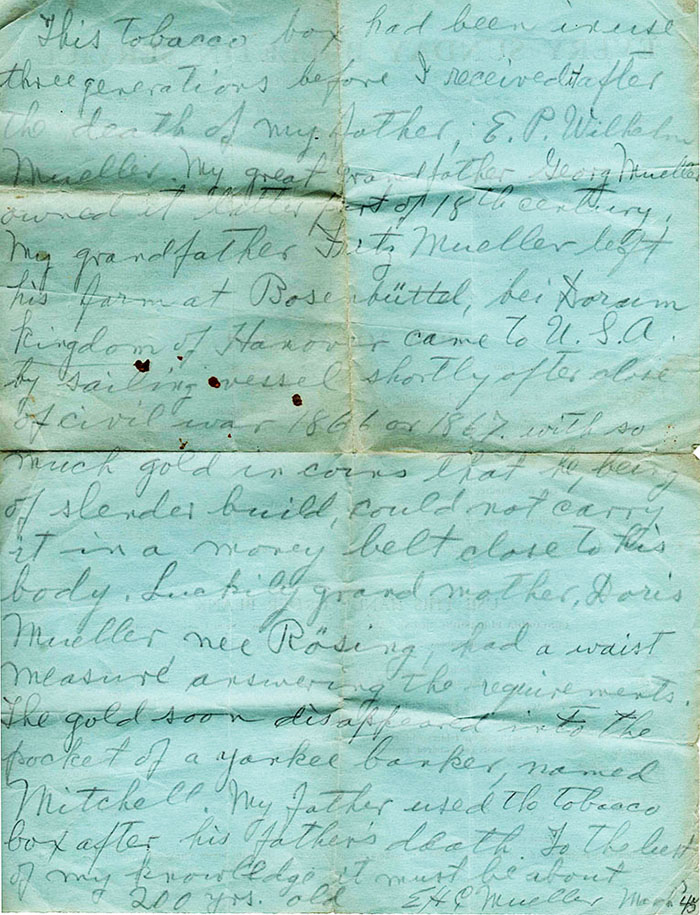 This tobacco box had been in use
three generations before I received it after
the death of my father, E. P. Wilhelm
Mueller. My great grandfather Georg Mueller
owned it latter part of 18th century.
My grandfather Fritz Mueller left
his farm at Bosenbüttel, bei Dorum
Kingdom of Hanover came to U.S.A.
by sailing vessel shortly after close
of civil war 1866 or 1867. with so
much gold in coins that he, being
of slender build, could not carry
it in a money belt close to his
body. Luckily grand mother, Doris
Mueller nee Rösing, had a waist
measure answering the requirements.
The gold soon disappeared into the
pocket of a yankee banker, named
Mitchell. My father used the tobacco
box after his father's death. To the best
of my knowledge it must be about
200 yrs. old E H C Mueller